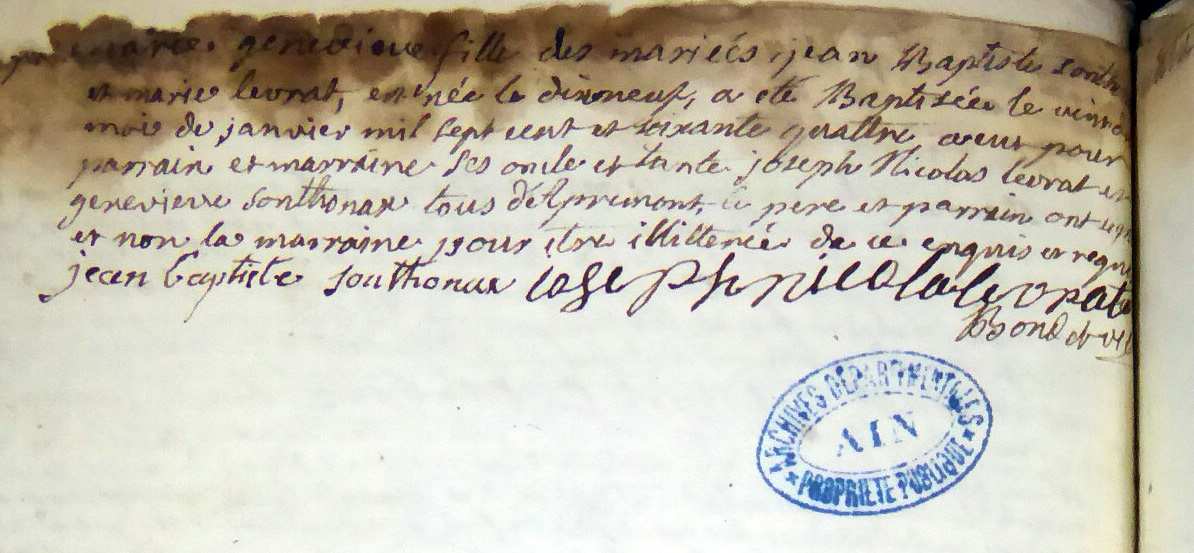 marie genevieve fille des mariés jean Baptiste
et marie levrat, est née le dixneuf, a eté Baptisée le
mois de janvier mil sept cent et soixante quattre a eut pour
parrain et marraine ses oncle et tante joseph Nicolas levrat et
genevieve sonthonax tous d'Apremont, le pere et parrain ont
et non la marraine pour etre illitterée de ce enquis et
jean baptiste sonthonax joseph nicolas levrat
ARCHIVES DÉPARTMENTALES
AIN
PROPRIÉTÉ PUBLIQUE